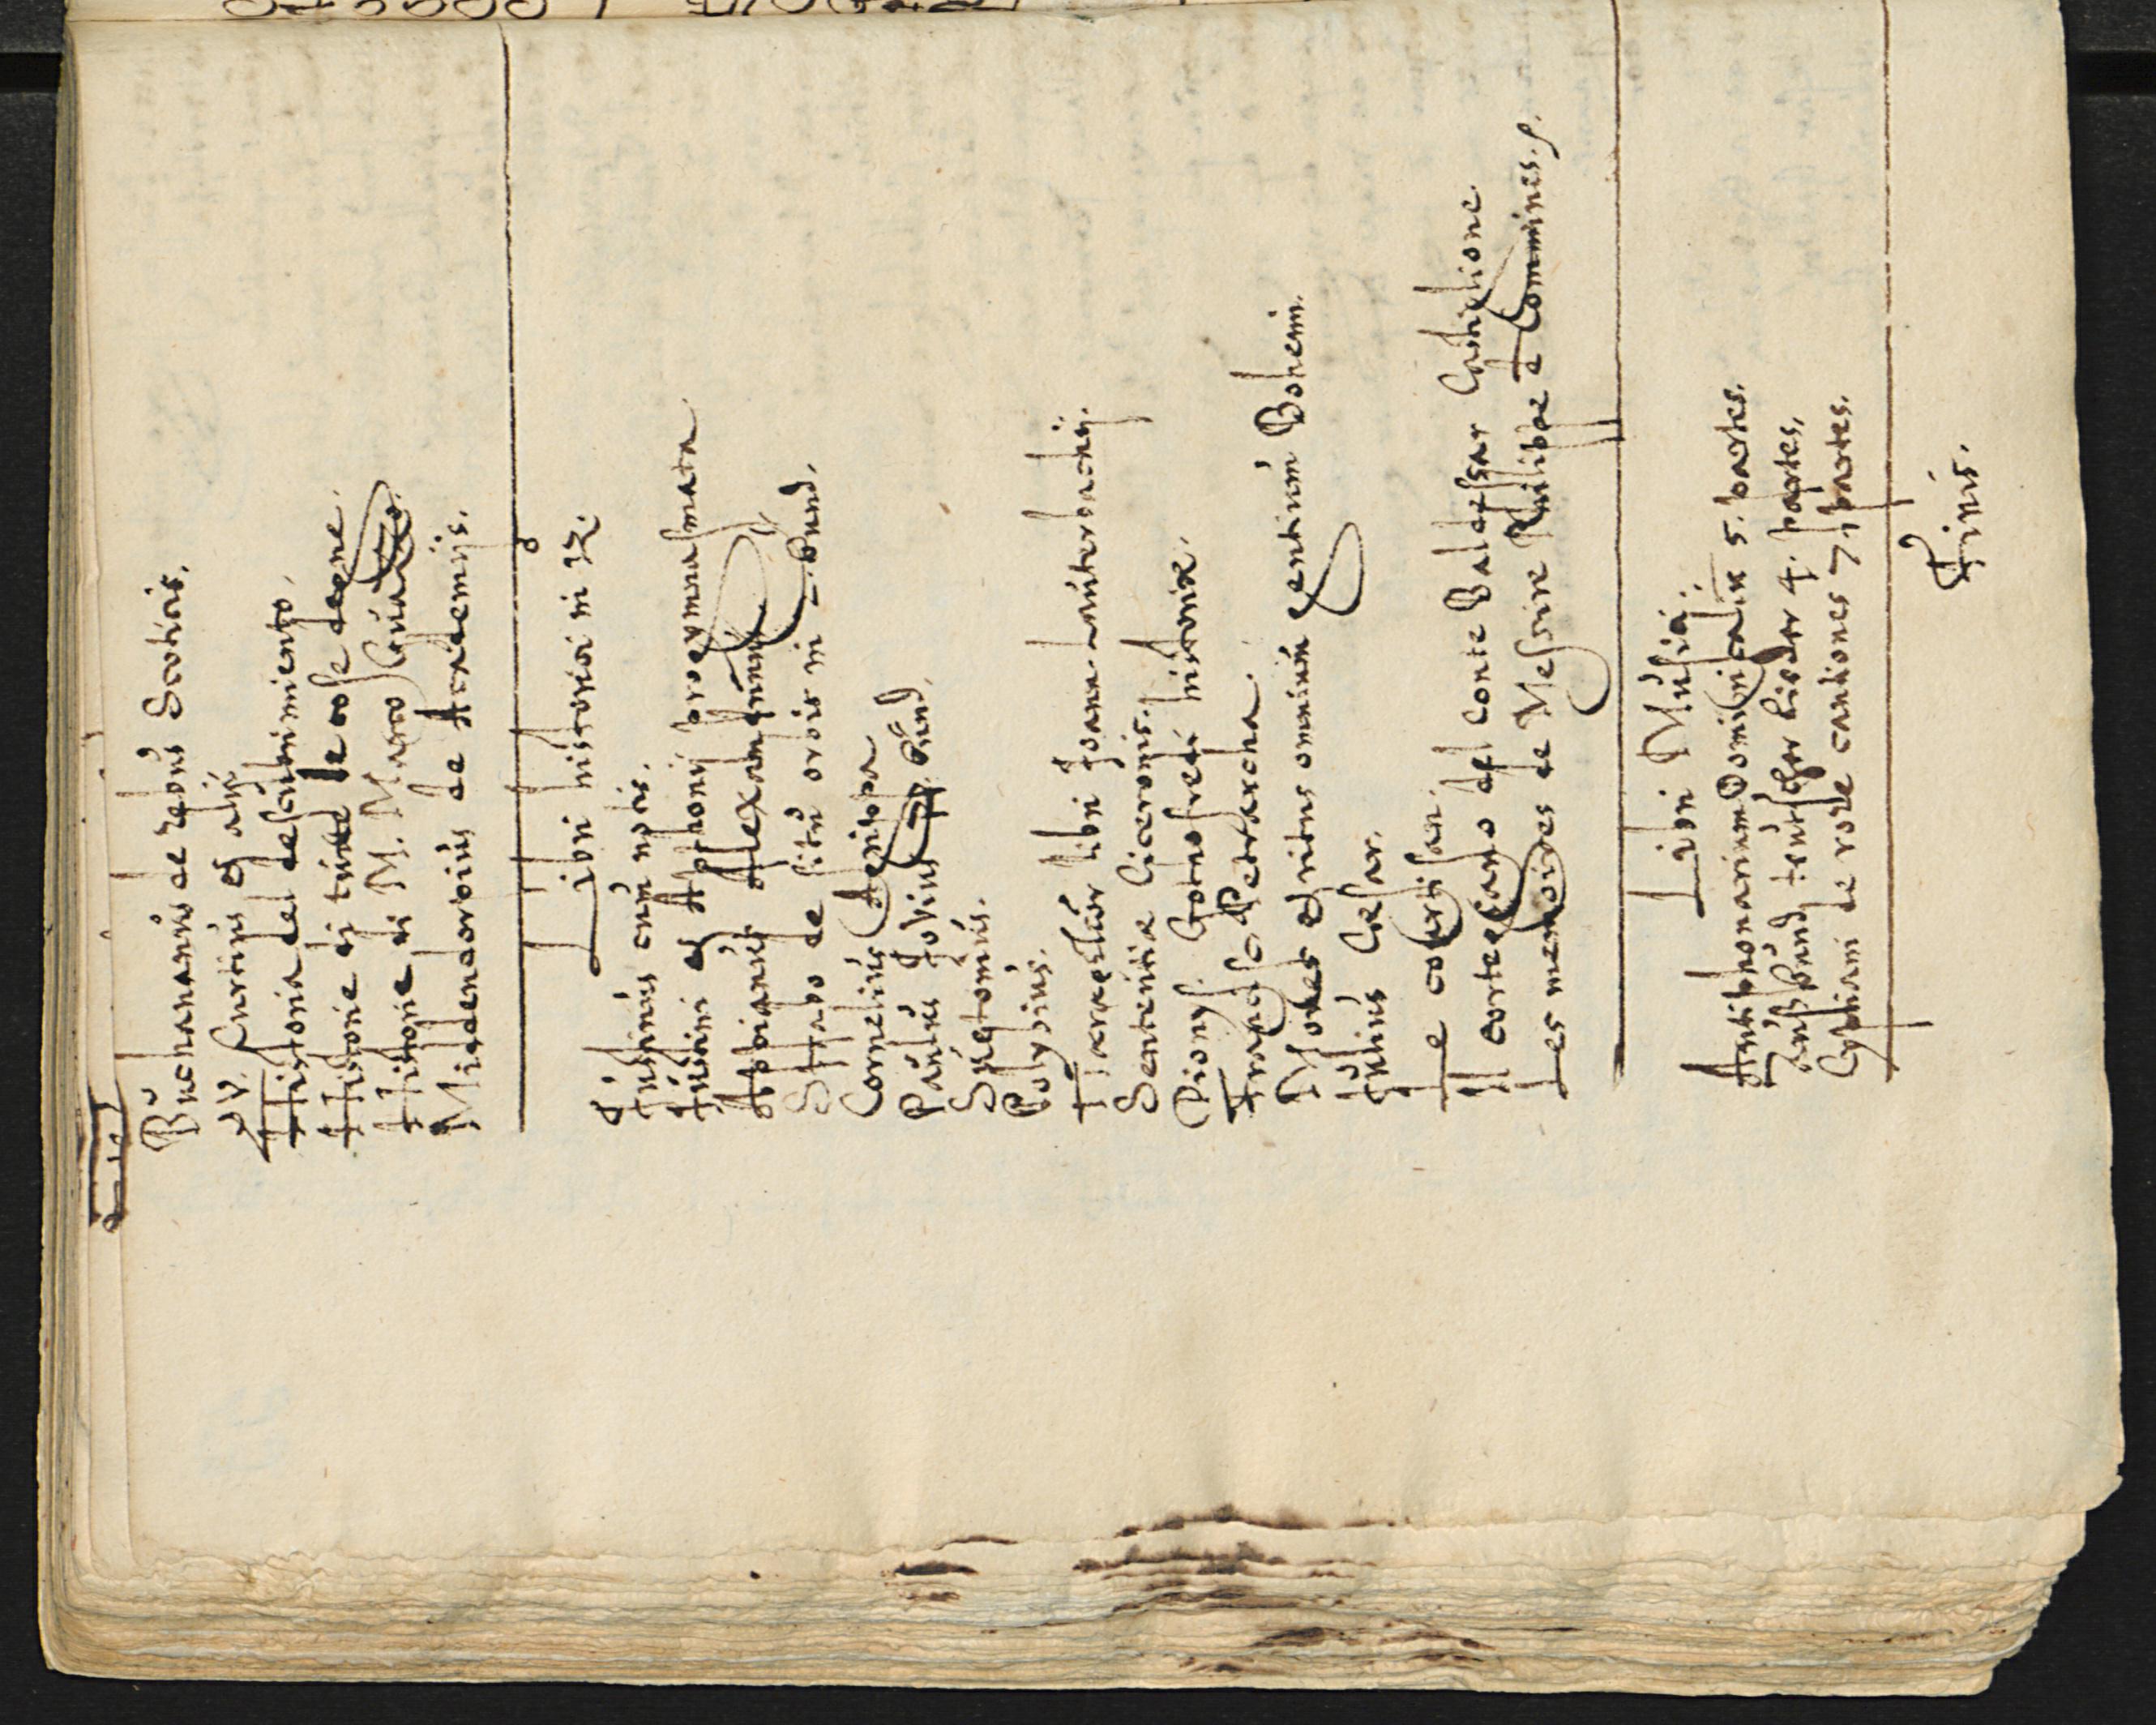 Buchananus de rebus Scoticis.
Q. Curtius et alij
Historia del descubrimiento.
Historie di tutte le cose degne.
Historie di M. Marco Guazzo.
Middendorpius de Academijs.
Libri historici in 12.
Justinus cum notis.
Justini et Apthonij progymnasmata
Appianus Alexandrinus
Strabo de situ orbis in 2. bund.
Cornelius Agrippa
Paulus Jovius bund.
Suetonius.
Polybius.
Tractatus libri Joannis Lauterbachij.
Sententiæ Ciceronis.
Dionys. Gothofredi historiæ.
Francisco Petrarcha.
Mores et ritus omnium gentium Bohemi.
Julius Cesar.
Le courtisan.
Il cortegiano del conte Baldessar Castiglione
Les memoires de Messire Philippe d Commines.
Libri Musici.
Antiphonarium Dominicale in 5. partes.
bund teutscher lieder 4. partes.
Cypriani de rore cantiones 7. partes.
Finis.